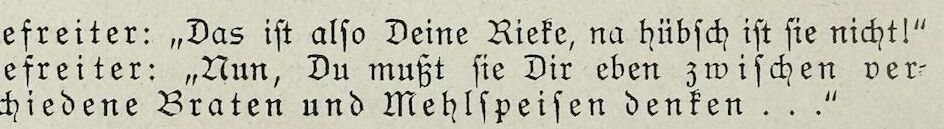 efreiter: „Das iſt alſo Deine Rieke, na hübſch iſt ſie nicht!“
efreiter: „Nun, Du mußt ſie Dir eben zwiſchen ver-
chiedene Braten und Mehlſpeiſen denken . . .“